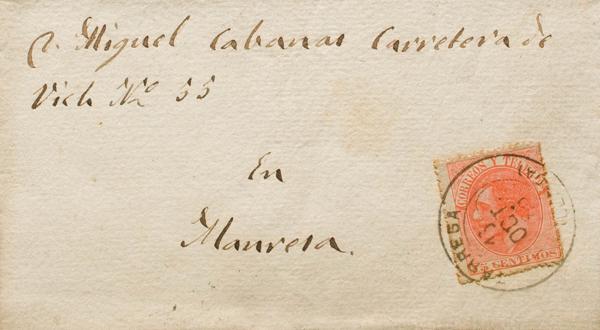 D. Miguel Cabanas Carretera de
Vich Nº 55
En
Manresa.
CORREOS Y TEL
CENTIMOS
TARREGA
OCT